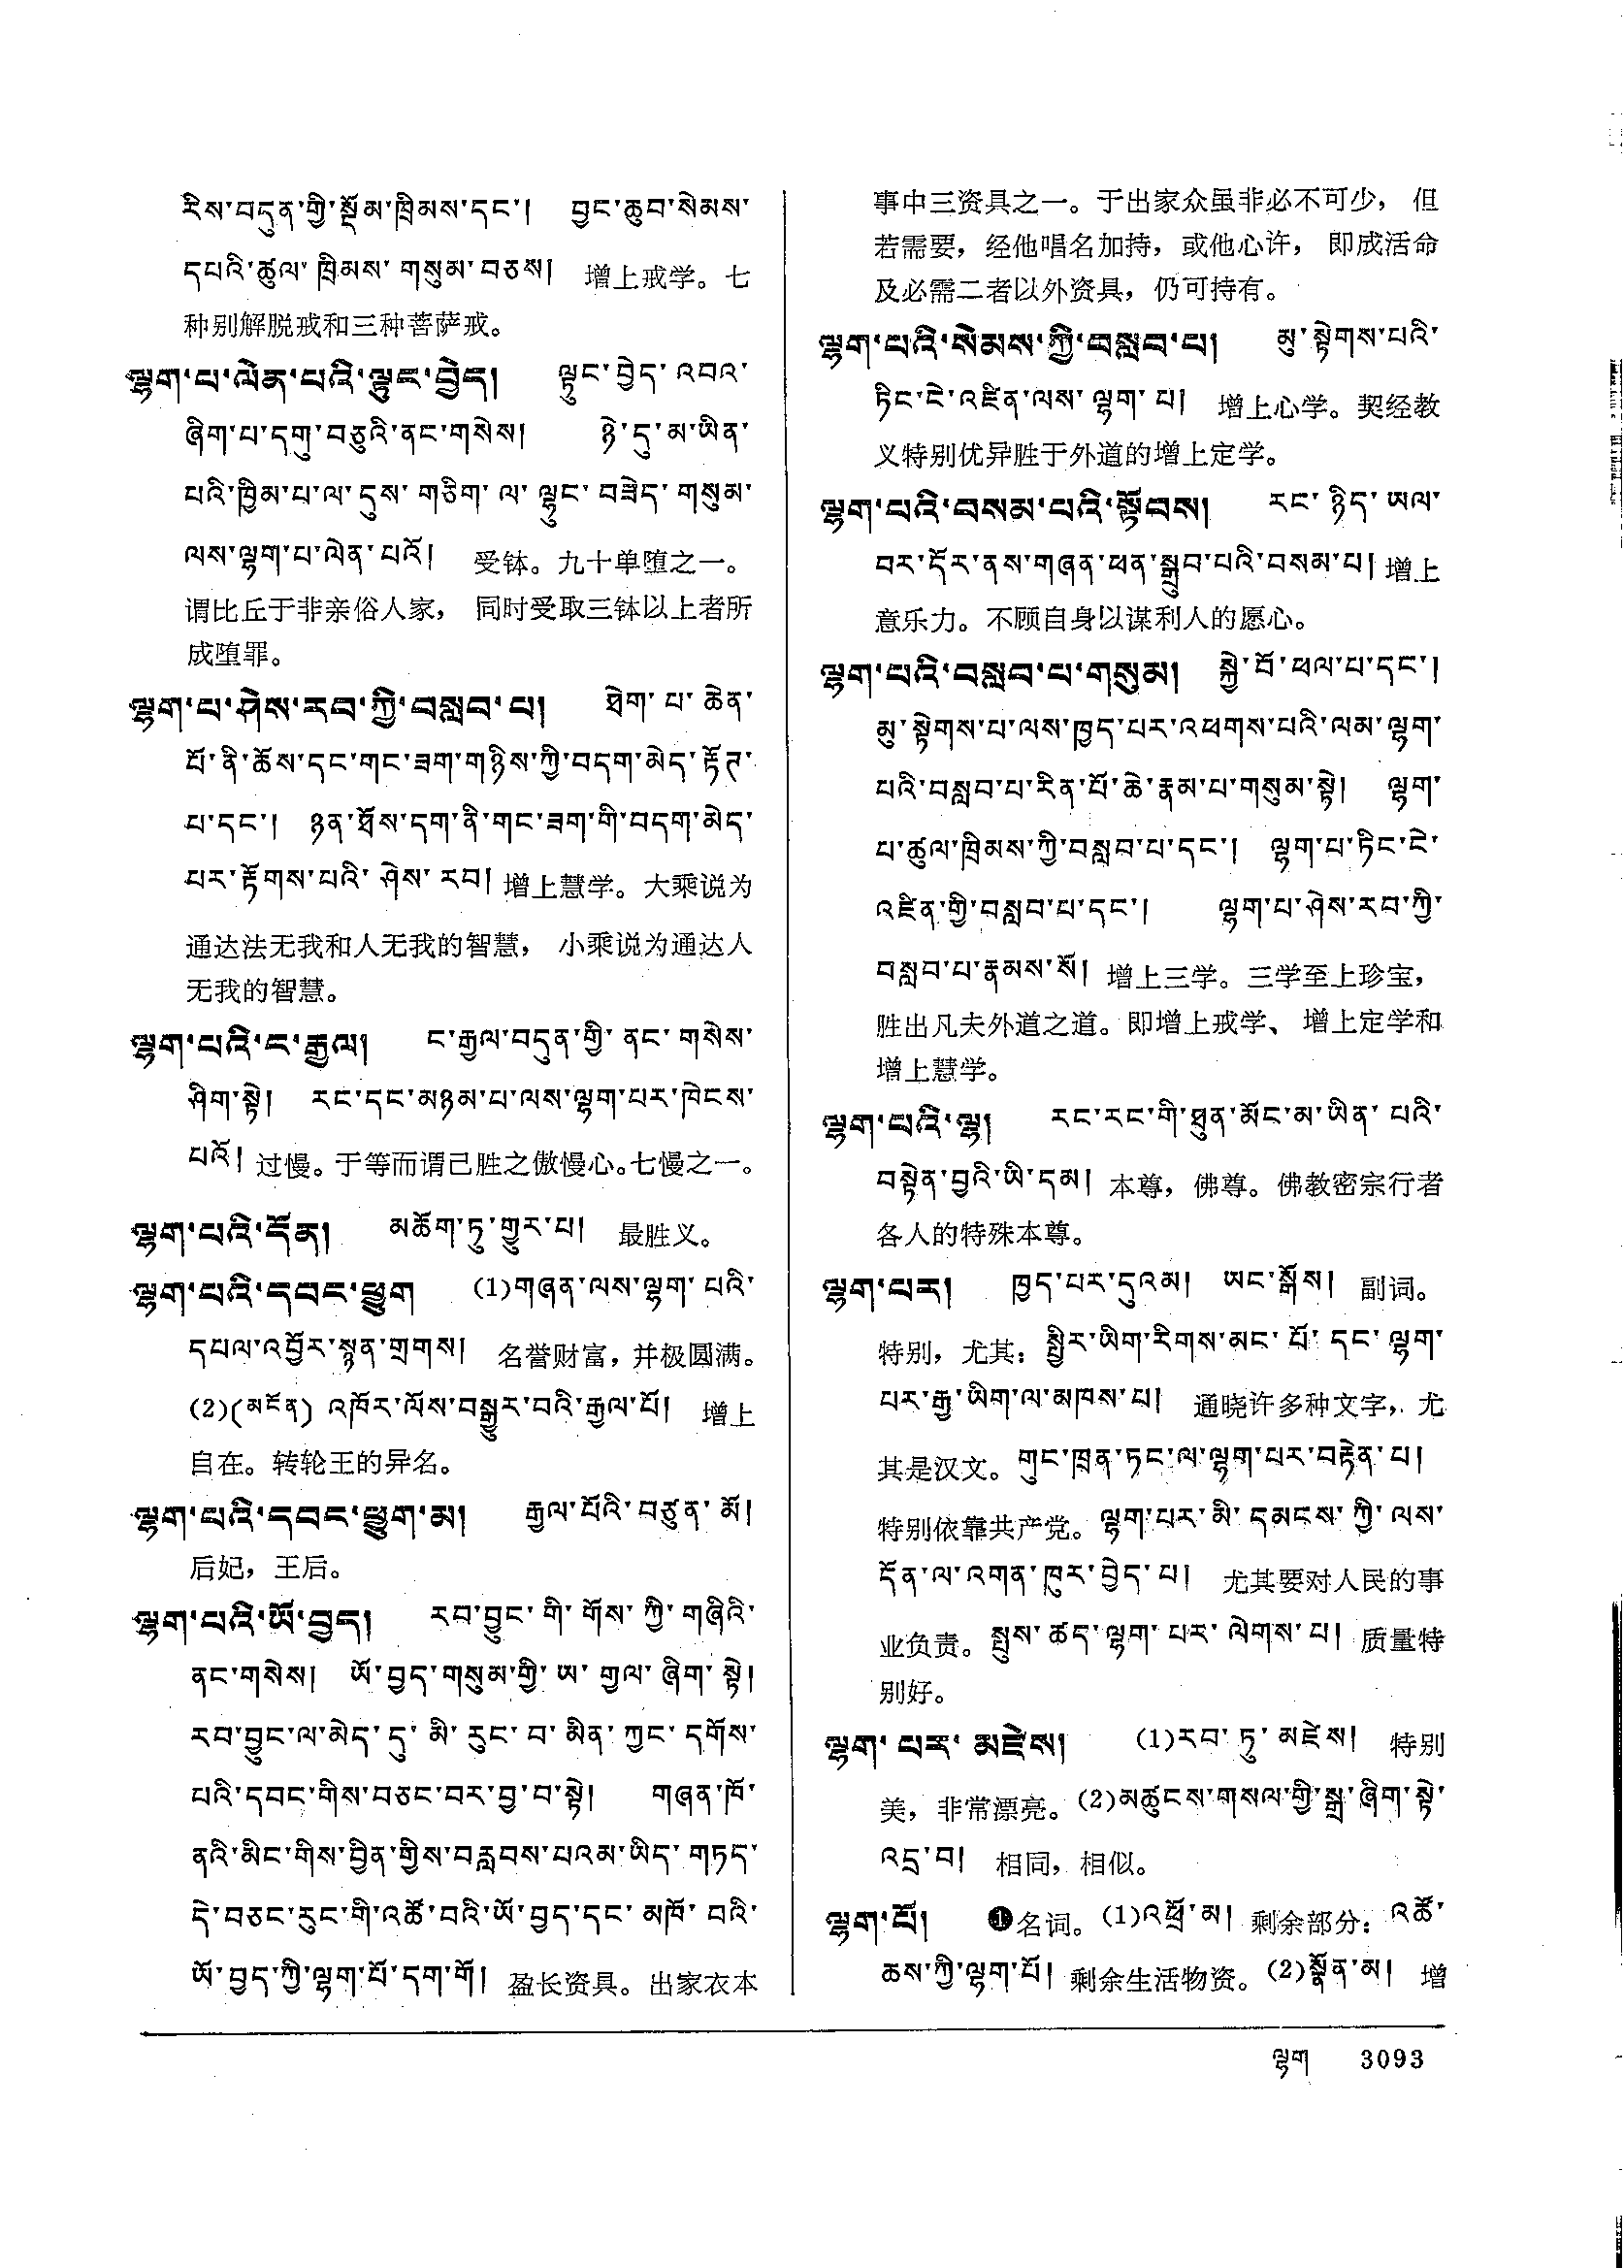 རིས་བདུན་གྱི་སྡོམ་ཁྲིམས་དང་། བྱང་ཆུབ་སེམས་
དཔའི་ཚུལ་ཁྲིམས་གསུམ་བཅས། 增上戒学。七
种别解脱戒和三种菩萨戒。
ལྷག་པ་ལེན་པའི་ལྟུང་བྱེད། ལྟུང་བྱེད་འབའ་
ཞིག་པ་དགུ་བཅུའི་ནང་གསེས། ཉེ་དུ་མ་ཡིན་
པའི་ཁྱིམ་པ་ལ་དུས་གཅིག་ལ་ལྷུང་བཟེད་གསུམ་
ལས་ལྷག་པ་ལེན་པའོ། 受钵。九十单堕之一。
谓比丘于非亲俗人家，同时受取三钵以上者所
成堕罪。
ལྷག་པ་ཤེས་རབ་ཀྱི་བསླབ་པ། ཐེག་པ་ཆེན་
པོ་ནི་ཆོས་དང་གང་ཟག་གཉིས་ཀྱི་བདག་མེད་རྟོཊ་
པ་དང་། ཉན་ཐོས་དག་ནི་གང་ཟག་གི་བདག་མེད་
པར་རྟོགས་པའི་ཤེས་རབ། 增上慧学。大乘说为
通达法无我和人无我的智慧，小乘说为通达人
无我的智慧。
ལྷག་པའི་ང་རྒྱལ། ང་རྒྱལ་བདུན་གྱི་ནང་གསེས་
ཤིག་སྟེ། རང་དང་མཉམ་པ་ལས་ལྷག་པར་ཁེངས་
པའོ། 过慢。于等而谓己胜之傲慢心。七慢之一。
ལྷག་པའི་དོན། མཆོག་ཏུ་གྱུར་པ། 最胜义。
ལྷག་པའི་དབང་ཕྱུག (1)གཞན་ལས་ལྷག་པའི་
དཔལ་འབྱོར་སྙན་གྲགས། 名誉财富，并极圆满。
(2)(མངོན) འཁོར་ལོས་བསྒྱུར་བའི་རྒྱལ་པོ། 增上
自在。转轮王的异名。
ལྷག་པའི་དབང་ཕྱུག་མ། རྒྱལ་པོའི་བཙུན་མོ།
后妃，王后。
ལྷག་པའི་ཡོ་བྱད། རབ་བྱུང་གི་གོས་ཀྱི་གཞིའི་
ནང་གསེས། ཡོ་བྱད་གསུམ་གྱི་ཨ་གྱལ་ཞིག་སྟེ།
རབ་བྱུང་ལ་མེད་དུ་མི་རུང་བ་མིན་ཀྱང་དགོས་
པའི་དབང་གིས་བཅང་བར་བྱ་བ་སྟེ། གཞན་ཁོ་
ནའི་མིང་གིས་བྱིན་གྱིས་བརླབས་པའམ་ཡིད་གཏད་
དེ་བཅང་རུང་གི་འཚོ་བའི་ཡོ་བྱད་དང་མཁོ་བའི་
ཡོ་བྱད་ཀྱི་ལྷག་པོ་དག་གོ། 盈长资具。出家衣本
事中三资具之一。于出家众虽非必不可少，但
若需要，经他唱名加持，或他心许，即成活命
及必需二者以外资具，仍可持有。
ལྷག་པའི་སེམས་ཀྱི་བསླབ་པ། མུ་སྟེགས་པའི་
ཏིང་ངེ་འཛིན་ལས་ལྷག་པ། 增上心学。契经教
义特别优异胜于外道的增上定学。
ལྷག་པའི་བསམ་པའི་སྟོབས། རང་ཉིད་ཡལ་
བར་དོར་ནས་གཞན་ཕན་སྒྲུབ་པའི་བསམ་པ། 增上
意乐力。不顾自身以谋利人的愿心。
ལྷག་པའི་བསླབ་པ་གསུམ། སྐྱེ་བོ་ཕལ་པ་དང་།
མུ་སྟེགས་པ་ལས་ཁྱད་པར་འཕགས་པའི་ལམ་ལྷག་
པའི་བསླབ་པ་རིན་པོ་ཆེ་རྣམ་པ་གསུམ་སྟེ། ལྷག་
པ་ཚུལ་ཁྲིམས་ཀྱི་བསླབ་པ་དང་། ལྷག་པ་ཏིང་ངེ་
འཛིན་གྱི་བསླབ་པ་དང་། ལྷག་པ་ཤེས་རབ་ཀྱི་
བསླབ་པ་རྣམས་སོ། 增上三学。三学至上珍宝，
胜出凡夫外道之道。即增上戒学、增上定学和
增上慧学。
ལྷག་པའི་ལྷ། རང་རང་གི་ཐུན་མོང་མ་ཡིན་པའི་
བསྟེན་བྱའི་ཡི་དམ། 本尊，佛尊。佛教密宗行者
各人的特殊本尊。
ལྷག་པར། ཁྱད་པར་དུའམ། ཡང་སྒོས། 副词。
特别，尤其：སྤྱིར་ཡིག་རིགས་མང་པོ་དང་ལྷག་
པར་རྒྱ་ཡིག་ལ་མཁས་པ། 通晓许多种文字，尤
其是汉文。གུང་ཁྲན་ཏང་ལ་ལྷག་པར་བརྟེན་པ།
特别依靠共产党。ལྷག་པར་མི་དམངས་ཀྱི་ལས་
དོན་ལ་འགན་ཁུར་བྱེད་པ། 尤其要对人民的事
业负责。སྤུས་ཚད་ལྷག་པར་ལེགས་པ། 质量特
别好。
ལྷག་པར་མཛེས། (1)རབ་ཏུ་མཛེས། 特别
美，非常漂亮。(2)མཚུངས་གསལ་གྱི་སྒྲ་ཞིག་སྟེ་
འདྲ་བ། 相同，相似。
ལྷག་པོ། ❶名词。(1)འཕྲོ་མ། 剩余部分：འཚོ་
ཆས་ཀྱི་ལྷག་པོ། 剩余生活物资。(2)སྣོན་མ། 增
ལྷག 3093